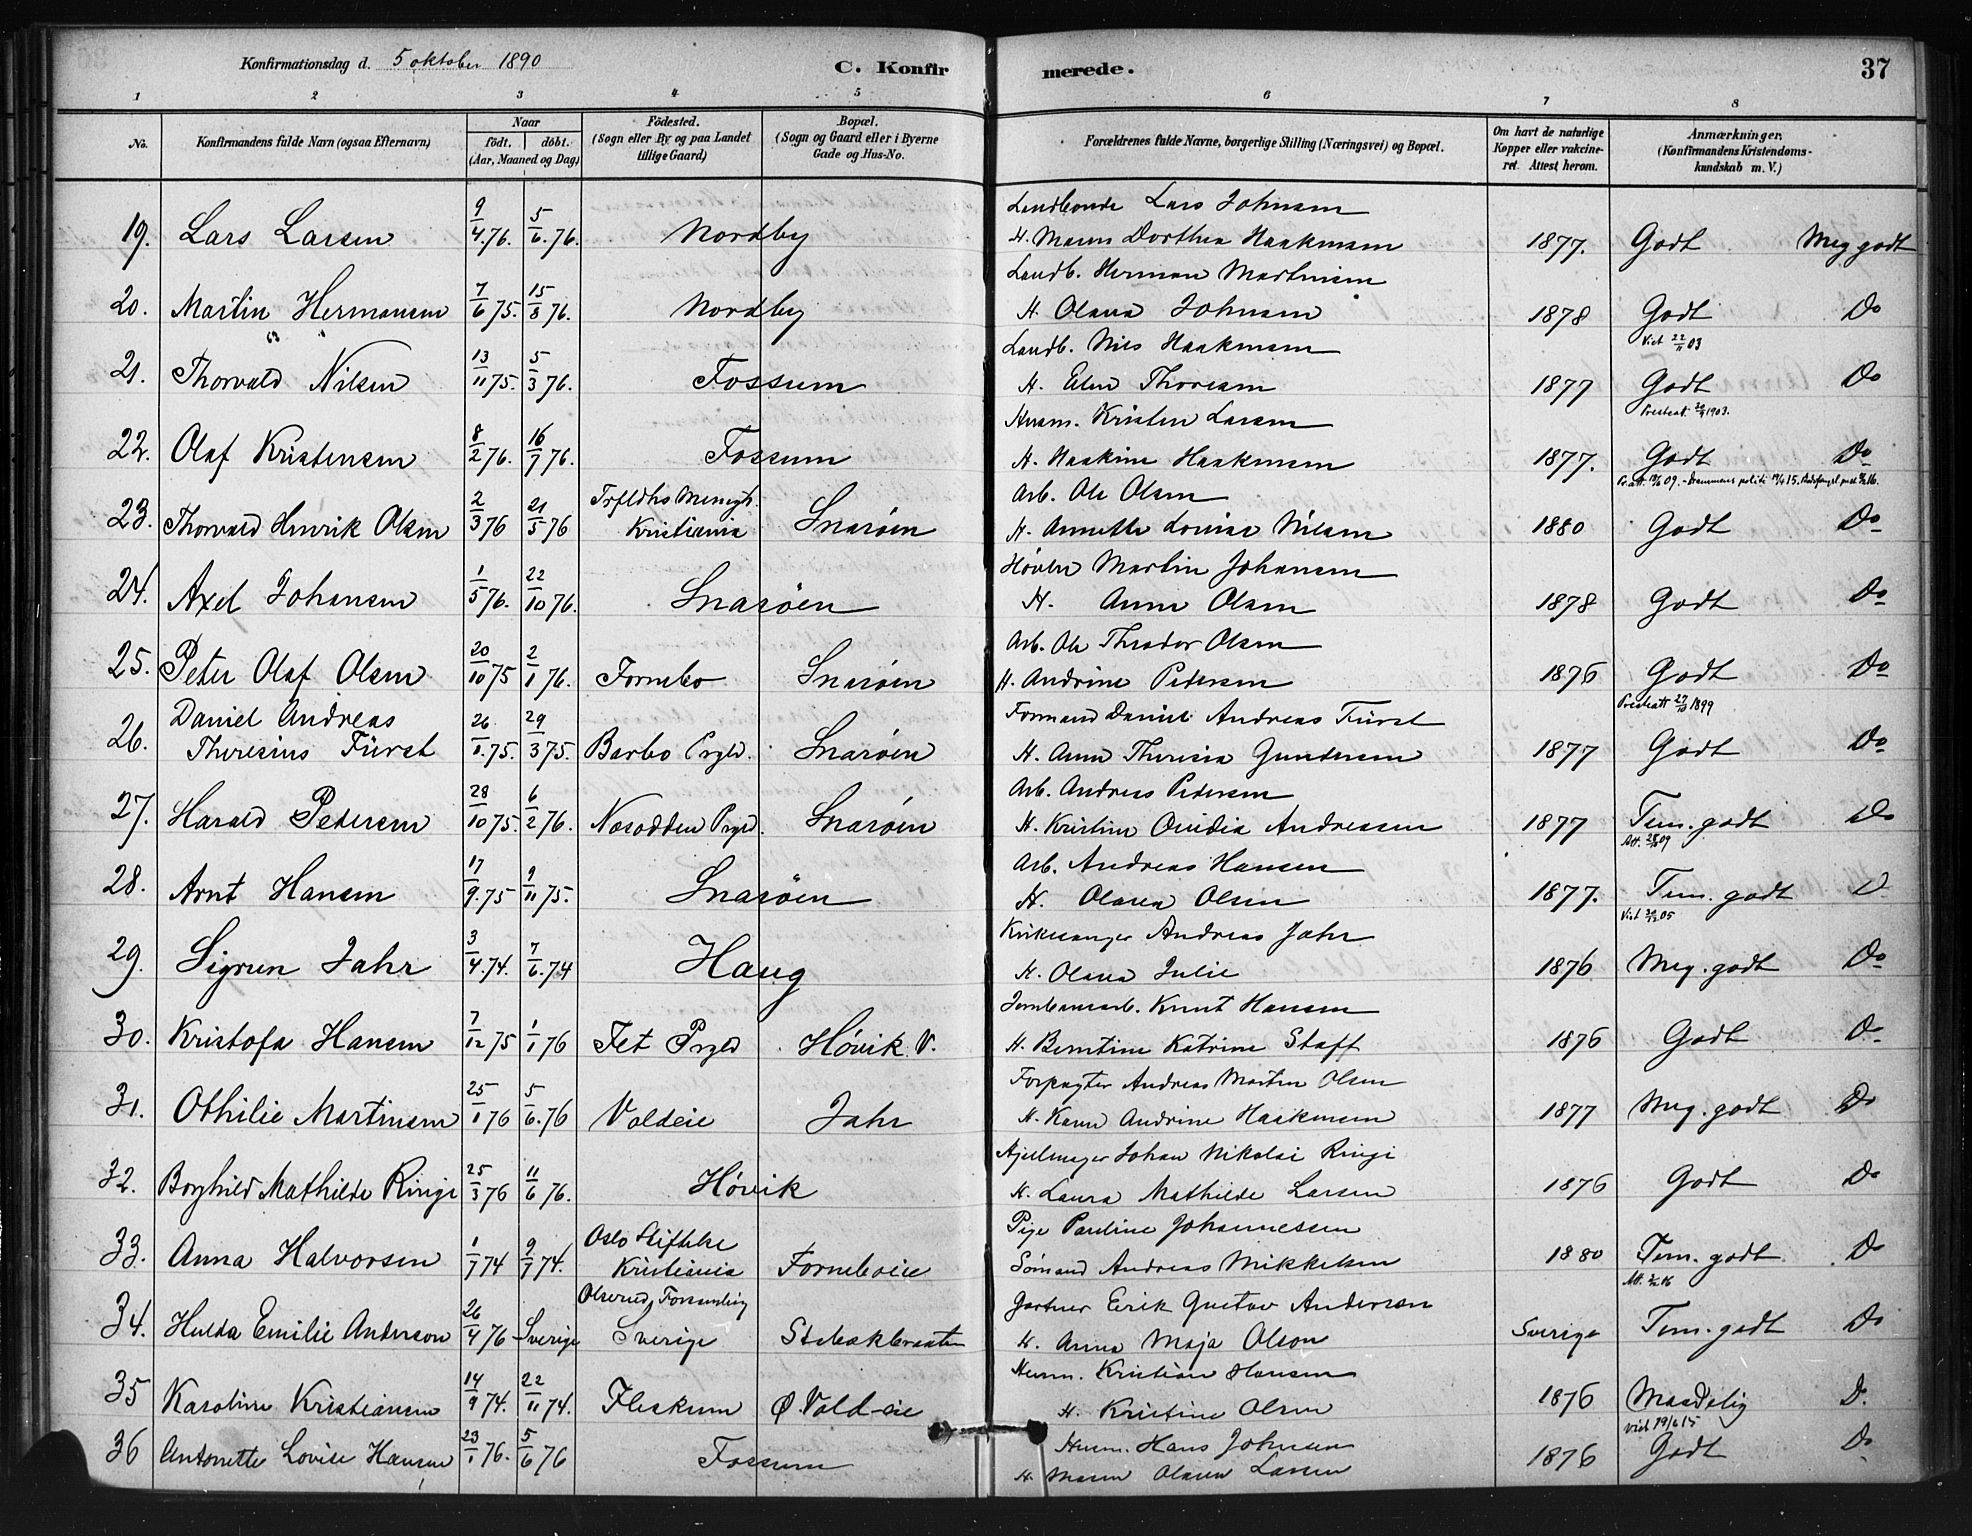 Konfirmationsdag d. 5 oktober 1890
C. Konfirmerede.
37
1 2 3 4 5 6 7 8
No.
Konfirmandens fulde Navn (ogsaa Efternavn)
Naar
født. døbt.
(Aar, Maaned og Dag)
Födested.
(Sogn eller By og paa Landet
tillige Gaard)
Bopæl.
(Sogn og Gaard eller i Byerne
Gade og Hus-No.
Forældrenes fulde Navne, borgerlige Stilling (Næringsvei) og Bopæl.
Om havt de naturlige
Kopper eller vakcine-
ret. Attest herom.
Anmærkninger.
(Konfirmandens Kristendoms-
kundskab m. V.)
Landbonde Lars Johnsen
19. Lars Larsen 9/4.76. 5/6.76. Nordby H. Maren Dorthea Haakensen 1877. Godt Meg godt
Landb. Herman Martinsen
20. Martin Hermansen 7/6 75. 15/3 76. Nordby H. Olava Johnsen 1878 Godt Do
Landb. Nils Haakensen Vist 22/11 03
21. Thorvald Nilsen 13/11 75. 5/3 76. Fossum H. Elen Thoresen 1877 Godt Do
Husm. Kristen Larsen
22. Olaf Kristensen 8/2 76. 16/7 76. Fossum H. Haakine Haakensen 1877. Godt Do
Arb. Ole Olsen
23. Thorvald Henrik Olsen 2/3 76 21/5 76 Trfldhs Menigh. Kristiania Snarøen H. Annette Lovise Nilsen 1880 Godt Do
Høvler Martin Johansen
24. Axel Johansen 1/5 76. 22/10 76. Snarøen H. Anne Olsen 1878 Godt Do
Arb. Ole Theodor Olsen
25. Peter Olaf Olsen 20/10 75 2/1 76. Fornebo Snarøen H. Andrine Pedersen 1876 Godt Do
Daniel Andreas Formand Daniel Andreas Fürst
26. Theresius Fürst 26/1.75. 29/3 75. Barbo Prgld. Snarøen H. Anne Theresia Gundersen 1877 Godt Do
Arb. Andreas Pedersen
27. Harald Pedersen 28/10 75. 6/2 76. Nesodden Prgld. Snarøen H. Kristine Ovidia Andreassen 1877 Tem. godt Do
Arb. Andreas Hansen
28. Arnt Hansen 17/9.75 9/11 75. Snarøen H. Olava Olsen 1877. Tem. godt D
Kirkesanger Andreas Jahr
29. Sigrun Jahr 3/4.74. 7/6.74 Haug H. Olava Julie 1876 Meg. godt Do
Jernbanearb. Knut Hansen
30. Kristofa Hansen 7/12 75 1/1 76 Fet Prgld Høvik V. H. Berntine Katrine Staff 1876 Godt Do
Forpagter Andreas Martin Olsen
31. Othilie Martinsen 25/1 76 5/6.76 Voldeie Jahr H. Karen Andrine Haakensen 1877 Meg. godt Do
Hjulmager Johan Nikolai Ringi
32. Borghild Mathilde Ringi 25/3 76 11/6 76. Høvik H. Laura Mathilde Larsen 1876 Godt Do
Oslo Stiftelse Pige Pauline Johannessen
33. Anna Halvorsen 1/7 74 9/7 74. Kristiania Forneboeie Sømand Andreas Mikkelsen 1880 Tem. godt Do
Gartner Erik Gustav Anderson
34. Hulda Emilie Anderson 26/4 76 Sverige Sverige Stabækbraaten H. Anna Maja Olson Sverige Tem. godt Do
Husm. Kristian Hansen
35 Karoline Kristiansen 14/9 74. 22/11 74. Fleskum Ø. Vold-eie H. Kristine Olsen 1876 Maadelig D.
Husm. Hans Johnsen
36 Antonette Lovise Hansen 23/1 76. 5/6 76 Fossum H. Maren Olava Larsen 1876 Godt Do